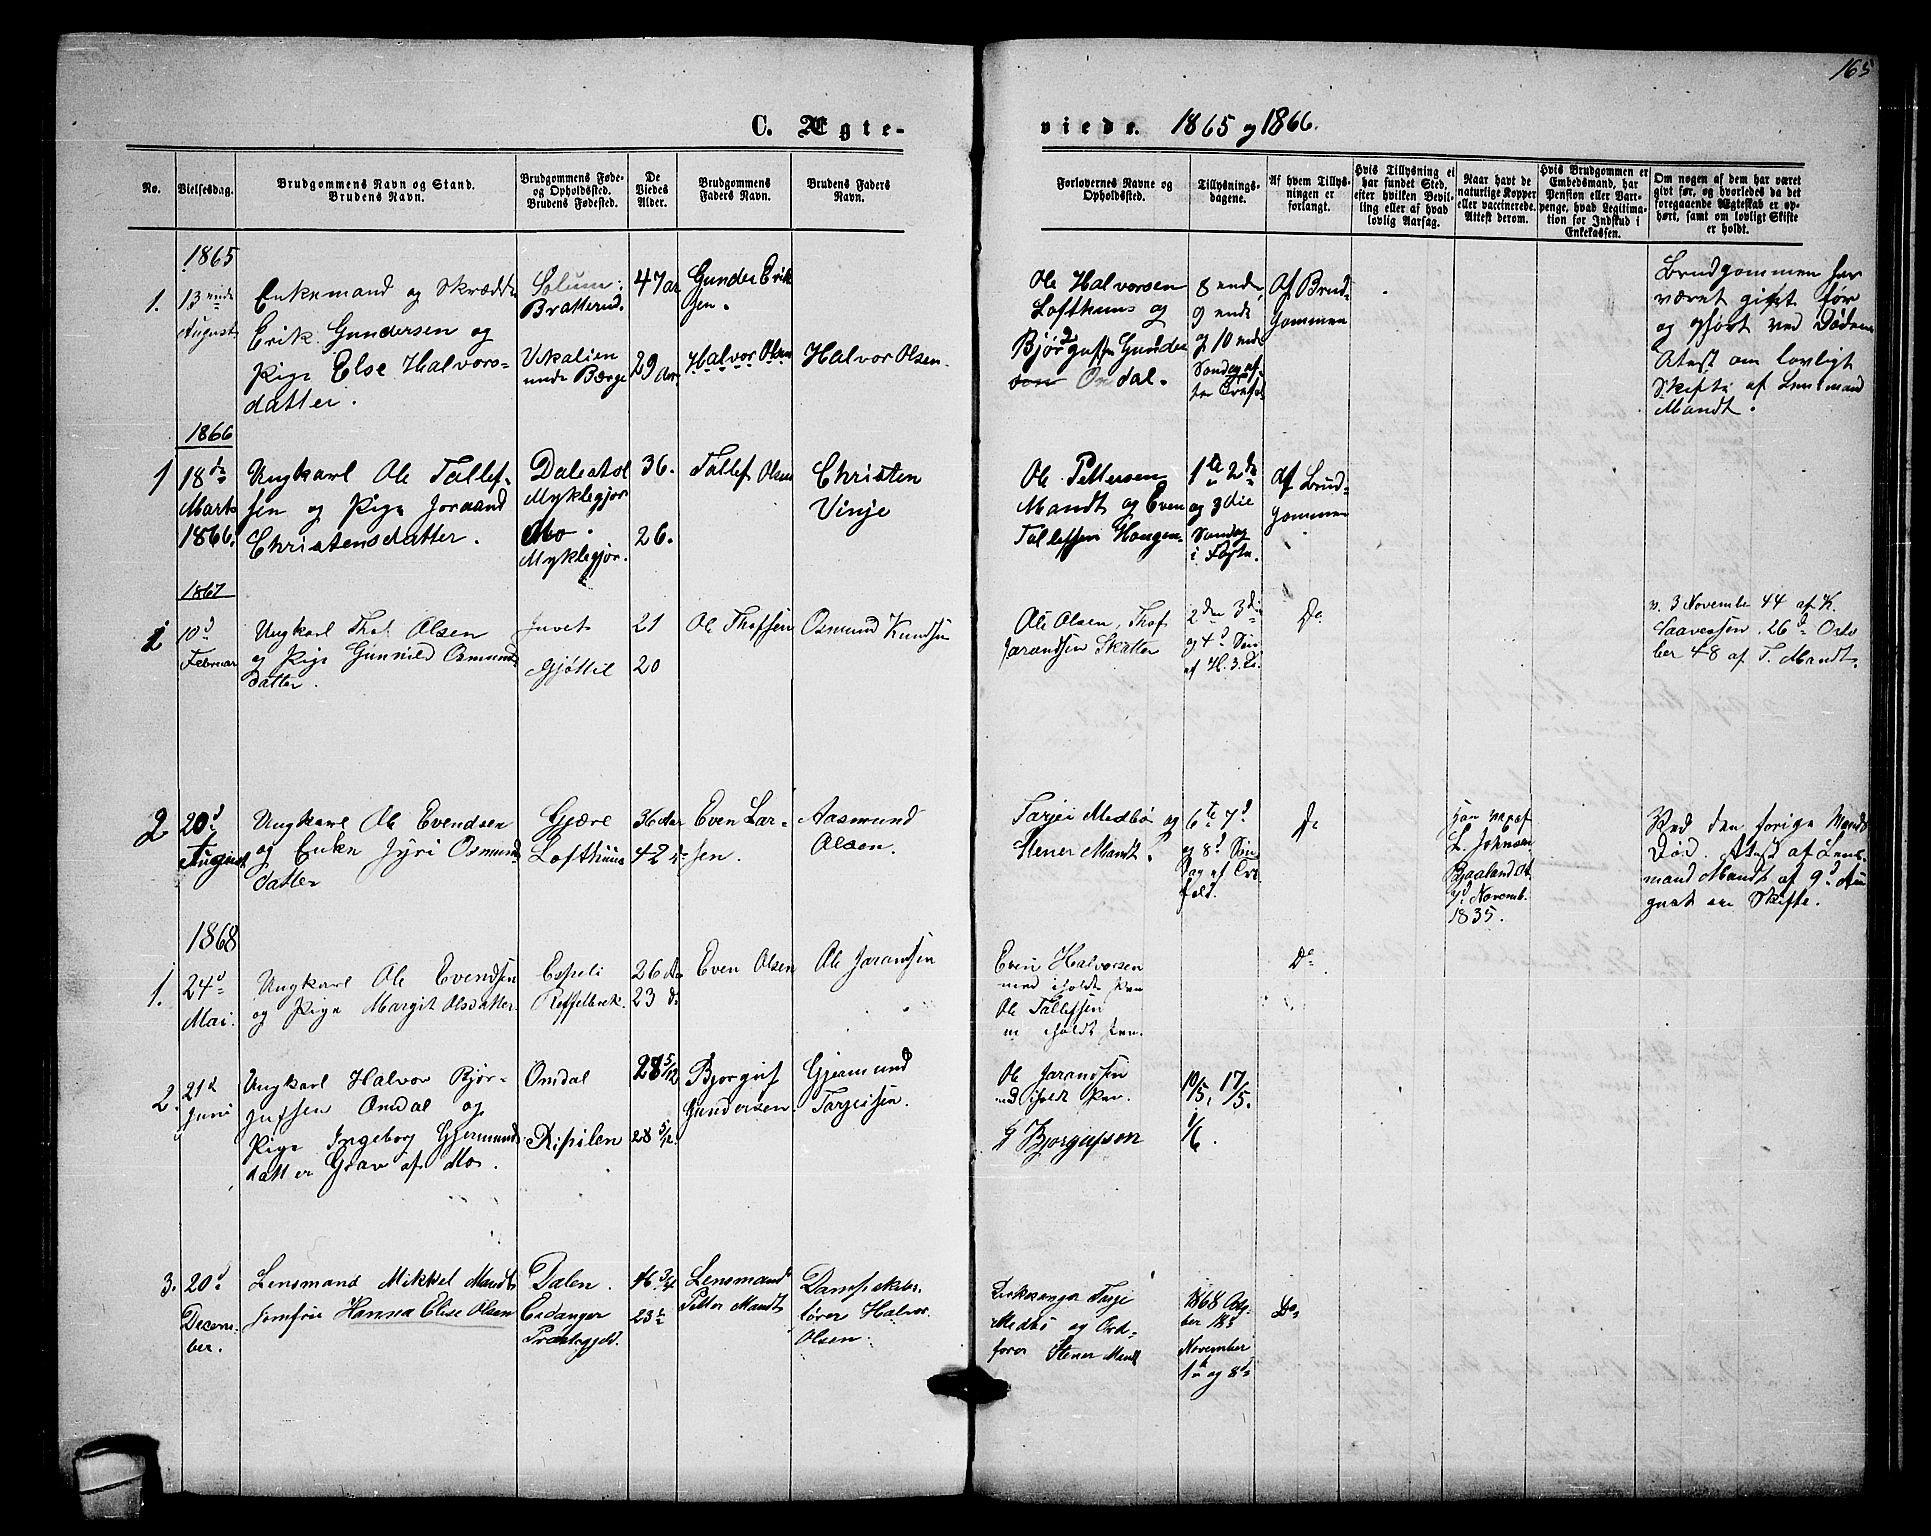 165
C. Ægte-
viede. 1865 og 1866.
No.
Vielsesdag.
Brudgommens Navn og Stand.
Brudens Navn.
Brudgommens Føde-
og Opholdssted.
Brudens Fødested.
De
Viedes
Alder.
Brudgommens
Faders Navn.
Brudens Faders
Navn.
Forlovernes Navne og
Opholdssted.
Tillysnings-
dagene.
Af hvem Tillys-
ningen er
forlangt.
Hvis Tillysning ei
har fundet Sted,
efter hvilken Bevil-
ling eller af hvad
lovlig Aarsag.
Naar havt de
naturlige Kopper
eller vaccinerede.
Attest derom.
Hvis Brudgommen er
Embedsmand, har
Pension eller Vart-
penge, hvad Legitima-
tion for Indskud i
Enkekassen.
Om nogen af dem har været
gift før, og hvorledes da det
foregaaende Ægteskab er op-
hørt, samt om lovligt Skifte
er holdt.
1865
1.
13 ende
August
Enkemand og Skrædder
Erik Gundersen og
Pige Else Halvors-
datter.
Solum
Bratterud.
47 aar
29 Aar
Gunder Erik
sen.
Halvor Olsen
Halvor Olsen
Ole Halvorsen
Lofthuus og
Gunder
Omdal.
8 ende,
9 ende
og 10 ende
Søndag af-
Af Brud-
gommen
Brudgommen har
været gift før
og ophørt ved Døden
Atest om lovligt
Skifte af Lensmand
Mandt.
1866
1
18de
Marts
1866.
Ungkarl Ole Tallef-
sen og Pige Joraand
Christensdatter.
Myklegjor
Mo.
Myklegjor.
36.
26.
Tallef Olsen
Christen
Vinje
Ole Pettersen
Mandt og Even
Tallefsen Haugen
1te 2de
og 3die
Søndag
i Faste.
af Brud-
gommen
1867
1
10d
Februar
Ungkarl Thof Olsen
og Pige Gunnild Osmunds
datter.
Juvet
Gjøttil
21
20
Ole Thofsen
Osmund Knudsen
Ole Olsen, Thof
Jarandsen Skatter
2den 3die
og 4d Søn
af H. 3. K.
Do
v. 3 November 44 af K.
26d Octo
ber 48 af T. Mandt.
2
20d
August
Ungkarl Ole Evendsen
og Enke Jyri Osmunds
datter
Gjære
Lofthuus
36 Aar
42 do
Even Lar-
sen.
Aasmund
Olsen.
Tarjei Medbø og
Stener Mandt.
6te 7d
og 8d Søn
dag af Tre
fold.
Do
han vac af
L. Johnsen
Baaland At.
7d Novemb.
1835.
Ved den forige Mands
Død. Atest af Lens-
mand Mandt af 9d Au
gust om Skifte.
1868
1.
24d
Mai.
Ungkarl Ole Evendsen
og Pige Margit Olsdatter
Espeli
26 Aar
23 do
Even Olsen
Ole Jarandsen
Even Halvorsen
med iholdt Pen
Ole Tallefsen
m iholdt Pen.
Do
2.
21d
Juni
Ungkarl Halvor Bjør-
gufsen Omdal og
Pige Ingeborg Gjermunds
datter Grav af Mo.
Omdal
Ripilen
28 5/12
28 5/12.
Bjorguf
Gundersen.
Gjermund
Tarjeisen.
Ole Jarandsen
md iholdt Pen.
G Bjorgufson
10/5, 17/5.
1/6.
3.
20d
Decem-
ber.
Lensmand Mikkel Mandt
Jomfru Hanna Elise Olsen
Dalen.
Eidanger
Præstegjeld.
46 3/4
23
Lensmand
Petter Mandt
Dampskibs-
fører Halvor
Olsen.
Kirkesanger Tarje
Medbø og Ord-
fører Stener Mandt
November
1te og 8de
Do